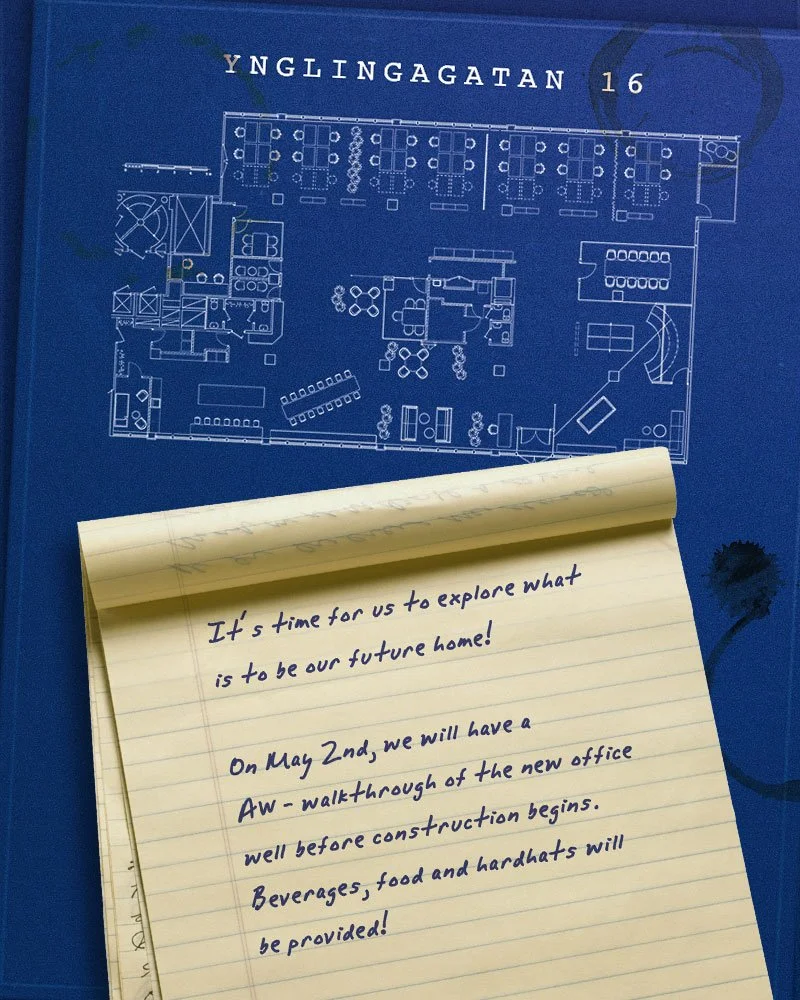 YNGLINGAGATAN 16
It's time for us to explore what
is to be our future home!
On May 2nd, we will have a
AW - walkthrough of the new office
well before construction begins.
Beverages, food and hardhats will
be provided!